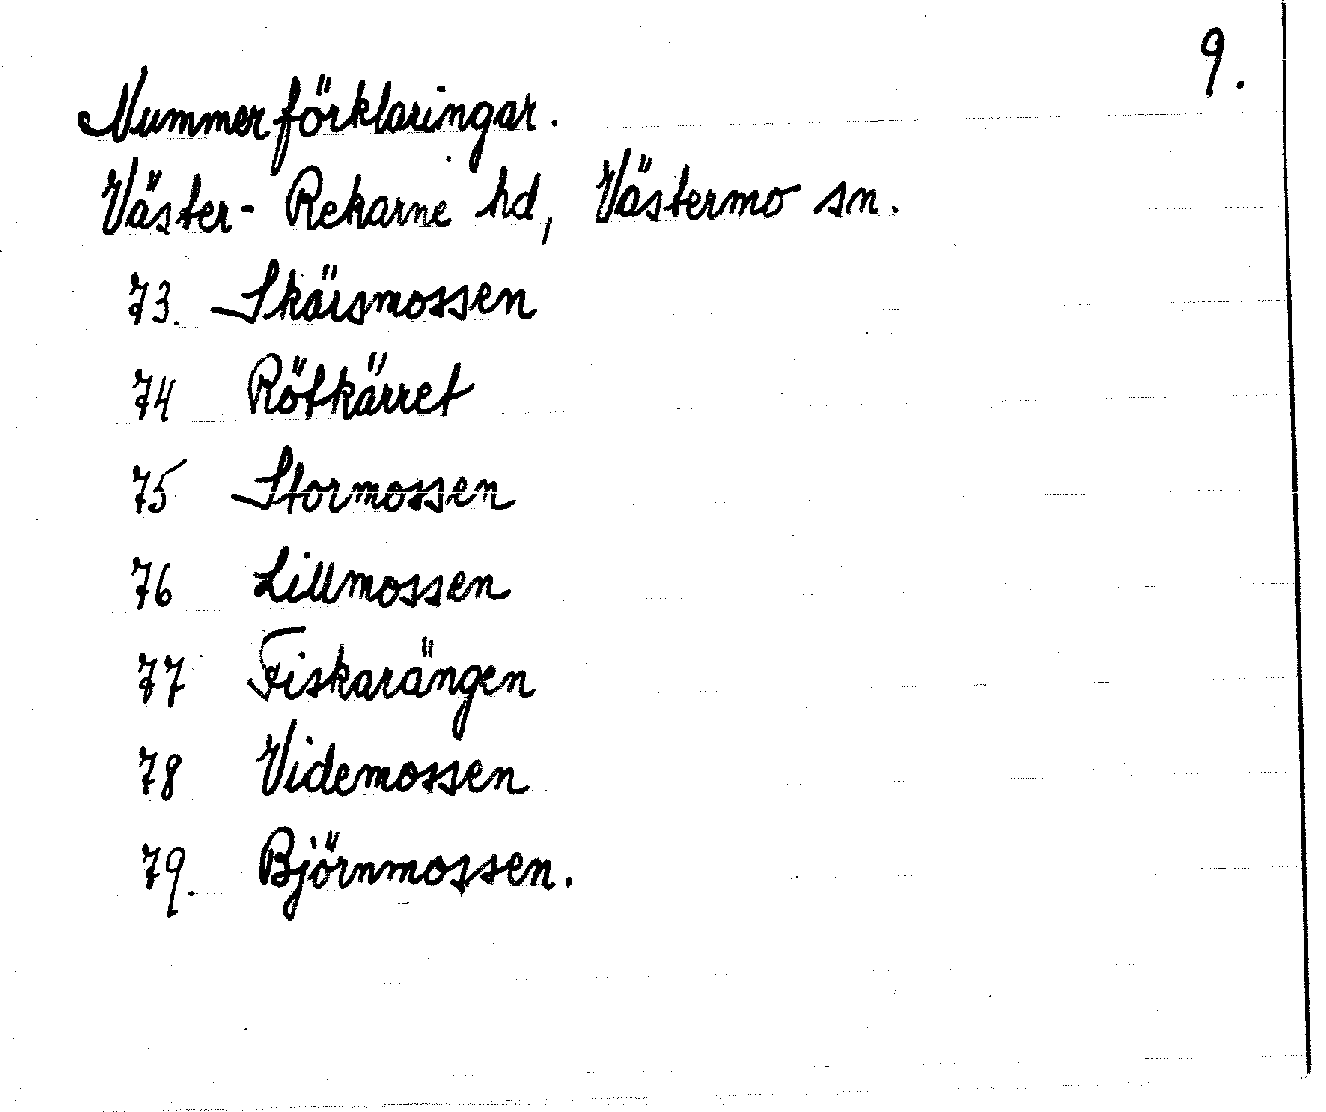 9.
Nummerförklaringar.
Väster-Rekarne hd, Västermo sn.
73. Skärsmossen
74 Rötkärret
75 Stormossen
76 Lillmossen
77 Fiskarängen
78 Videmossen
79. Björnmossen.